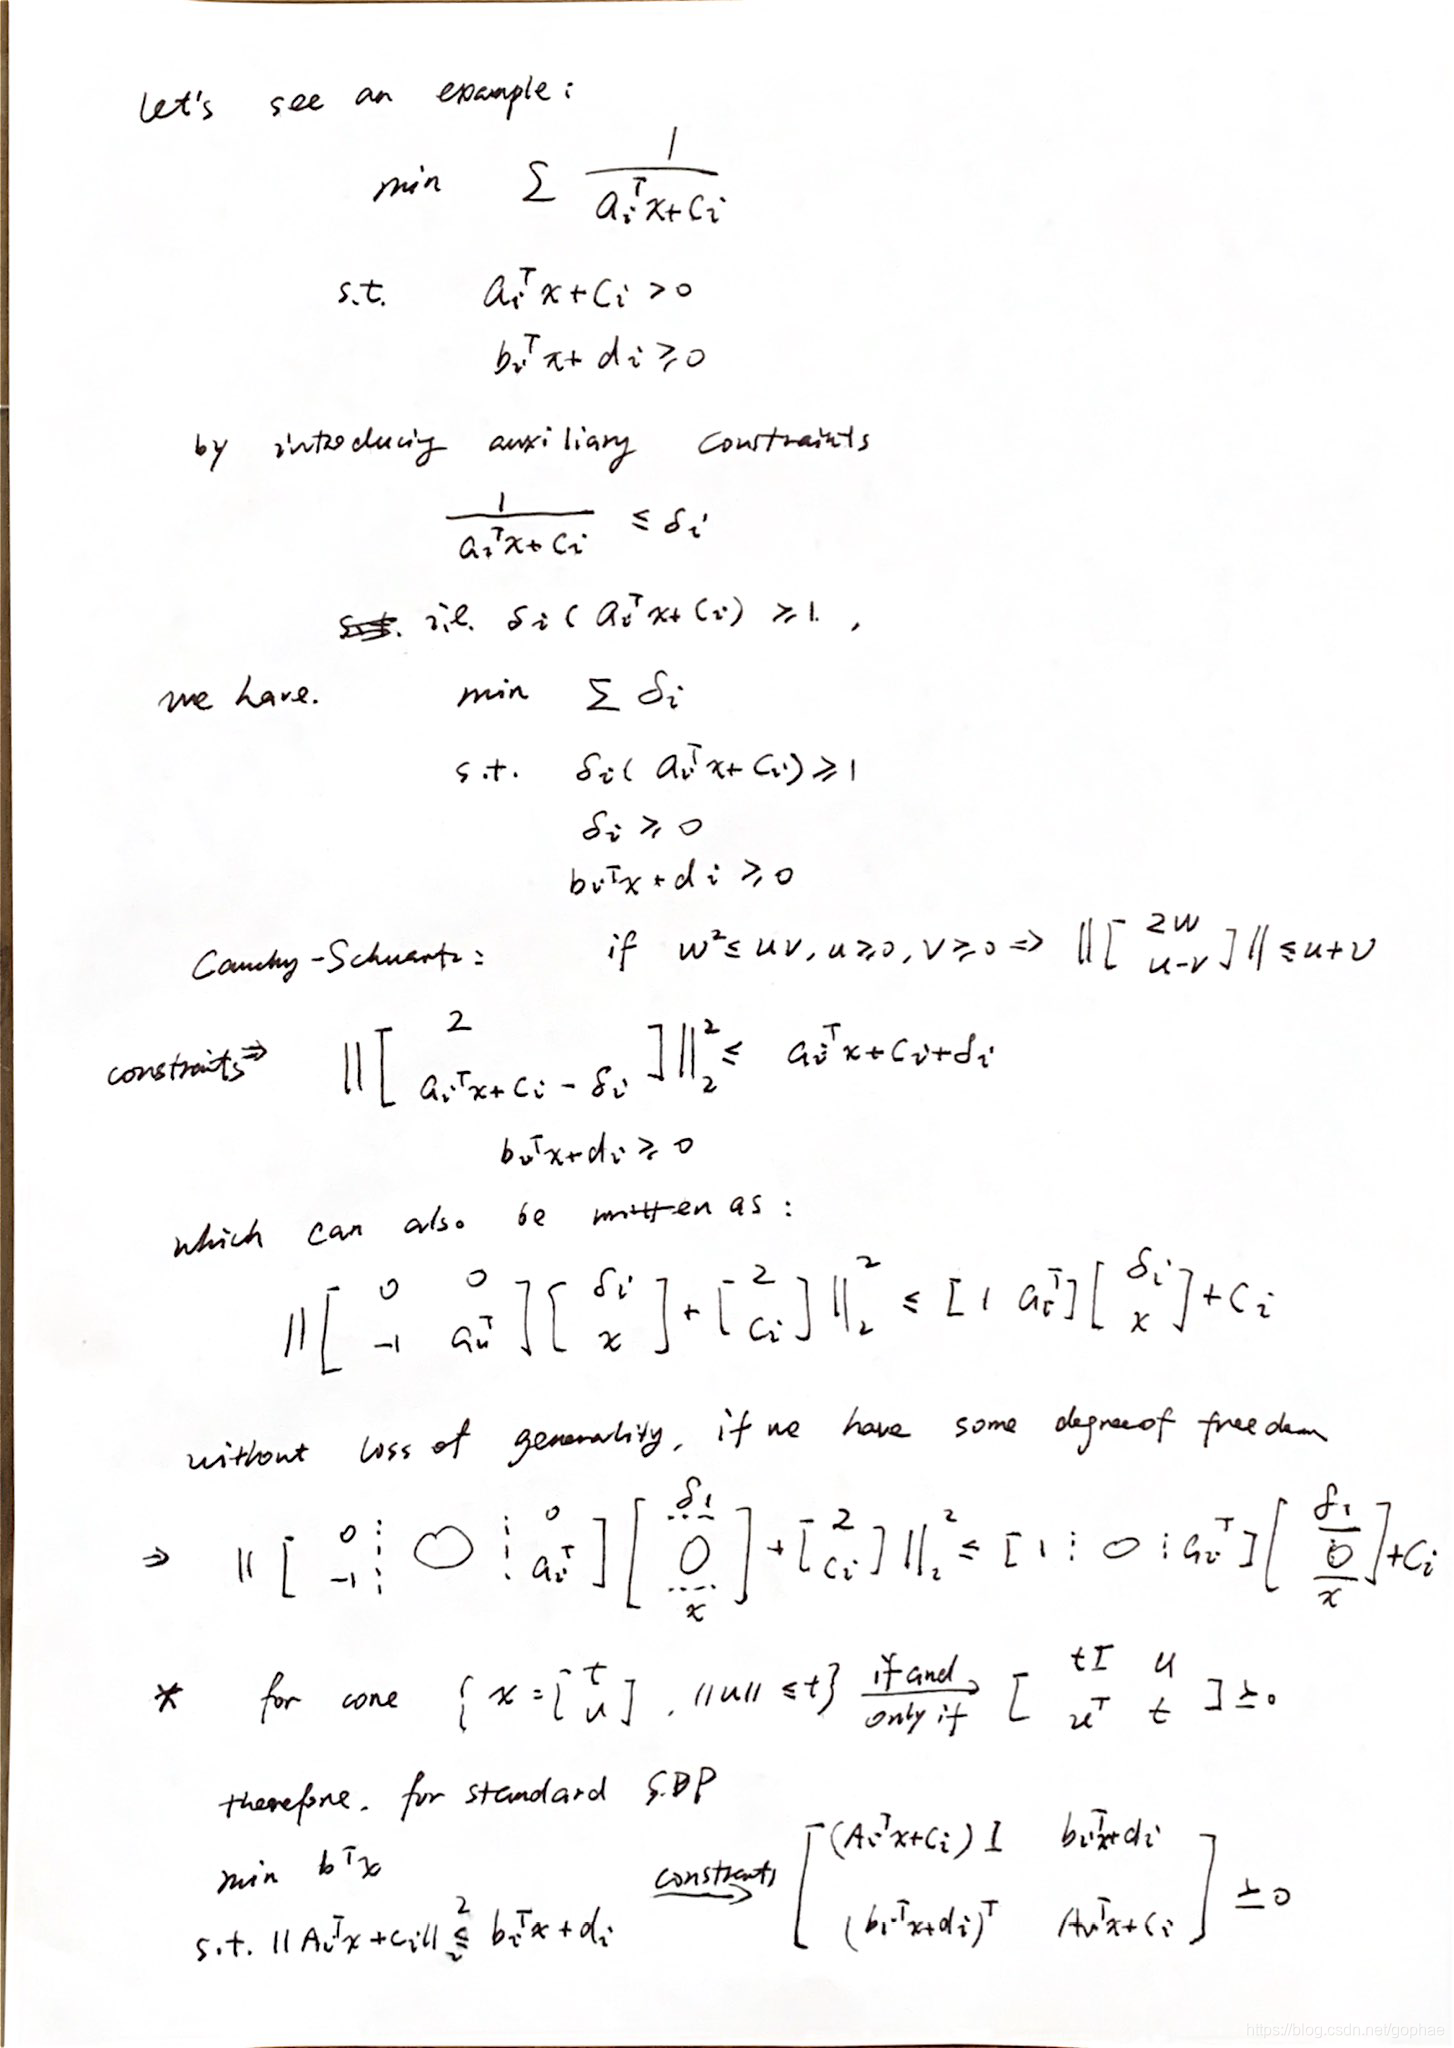 Let's see an example:
min ∑ 1/(aᵢᵀx+cᵢ)
s.t. aᵢᵀx+cᵢ >0
bᵢᵀx+dᵢ ≥0
by introducing auxiliary constraints
1/(aᵢᵀx+cᵢ) ≤ δᵢ
i.e. δᵢ(aᵢᵀx+cᵢ) ≥1.,
we have. min ∑ δᵢ
s.t. δᵢ(aᵢᵀx+cᵢ)≥1
δᵢ ≥ 0
bᵢᵀx+dᵢ ≥0
Cauchy-Schwartz: if w²≤uv, u≥0, v≥0 ⇒ ||[2w; u-v]|| ≤u+v
constraits ⇒ ||[2; aᵢᵀx+cᵢ-δᵢ]||₂² ≤ aᵢᵀx+cᵢ+δᵢ
bᵢᵀx+dᵢ ≥ 0
which can also be written as:
||[0 0; -1 aᵢᵀ][δᵢ; x]+[2; cᵢ]||₂² ≤ [1 aᵢᵀ][δᵢ; x]+cᵢ
without loss of generality, if we have some degree of freedom
⇒ ||[0 ⋮ 0 ⋮ 0; -1 ⋮ ⋮ aᵢᵀ][δ₁; 0; x]+[2; cᵢ]||₂² ≤ [1 ⋮ 0 ⋮ aᵢᵀ][δ₁; 0; x]+cᵢ
* for cone {x=[t; u], ||u|| ≤t} if and only if → [tI u; uᵀ t] ⪰0
therefore. for standard SDP
min bᵀx
s.t. ||Aᵢᵀx+cᵢ||₂² ≤ bᵢᵀx+dᵢ constraits → [(Aᵢᵀx+cᵢ)I bᵢᵀx+dᵢ; (bᵢᵀx+dᵢ)ᵀ Aᵢᵀx+cᵢ] ⪰0
https://blog.csdn.net/gophae